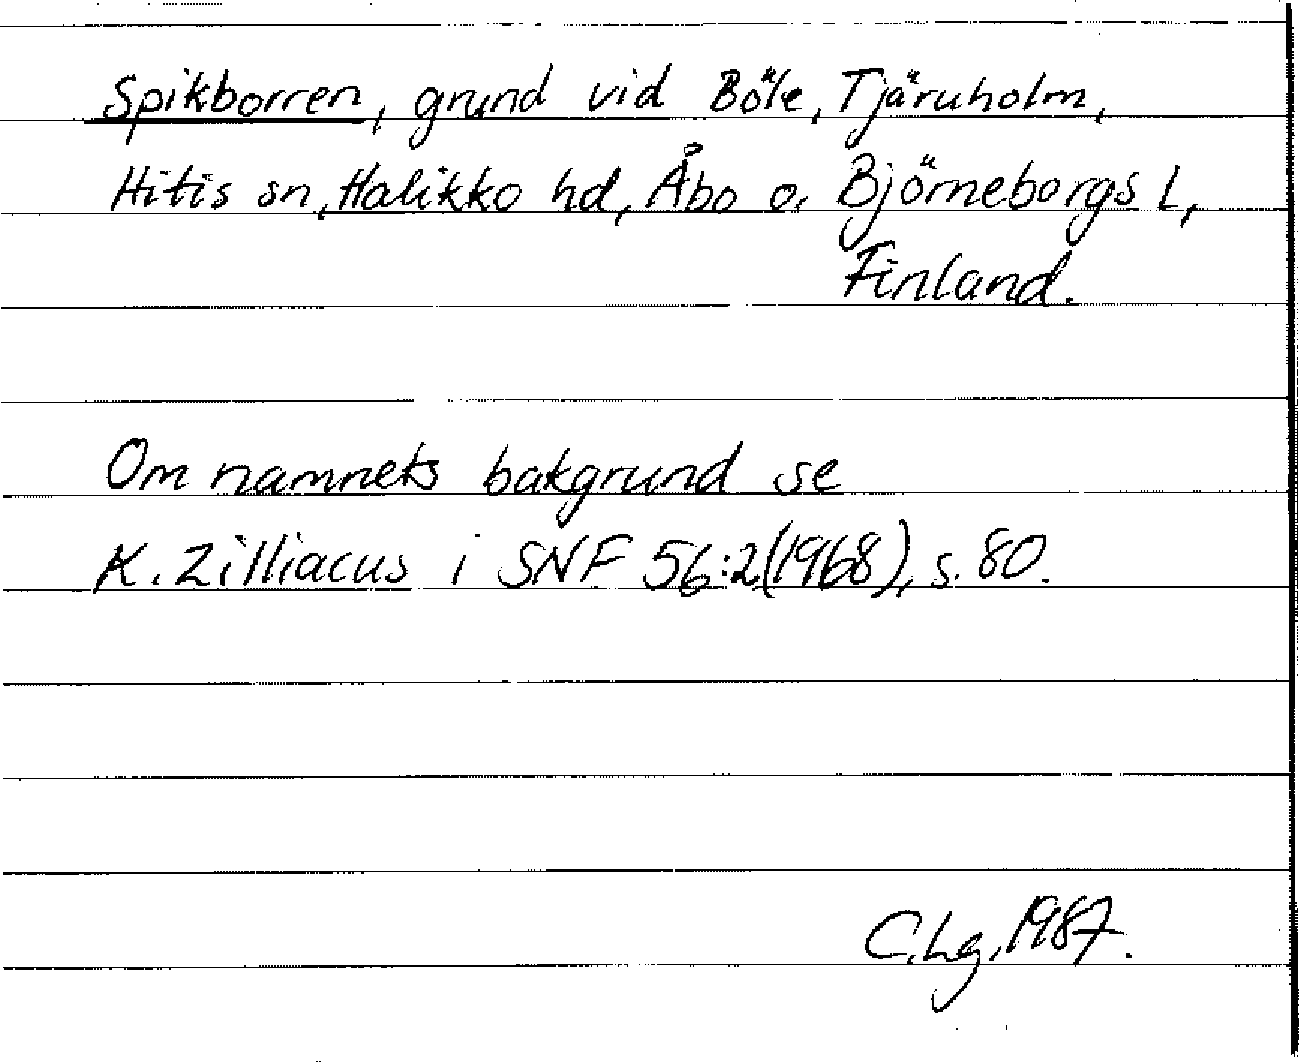 Spikborren, grund vid Böle, Tjäruholm,
Hitis sn, Halikko hd, Åbo o. Björneborgs l,
Finland.
Om namnets bakgrund se
K. Zilliacus i SNF 56:2(1968), s. 80.
C.Lg, 1987.